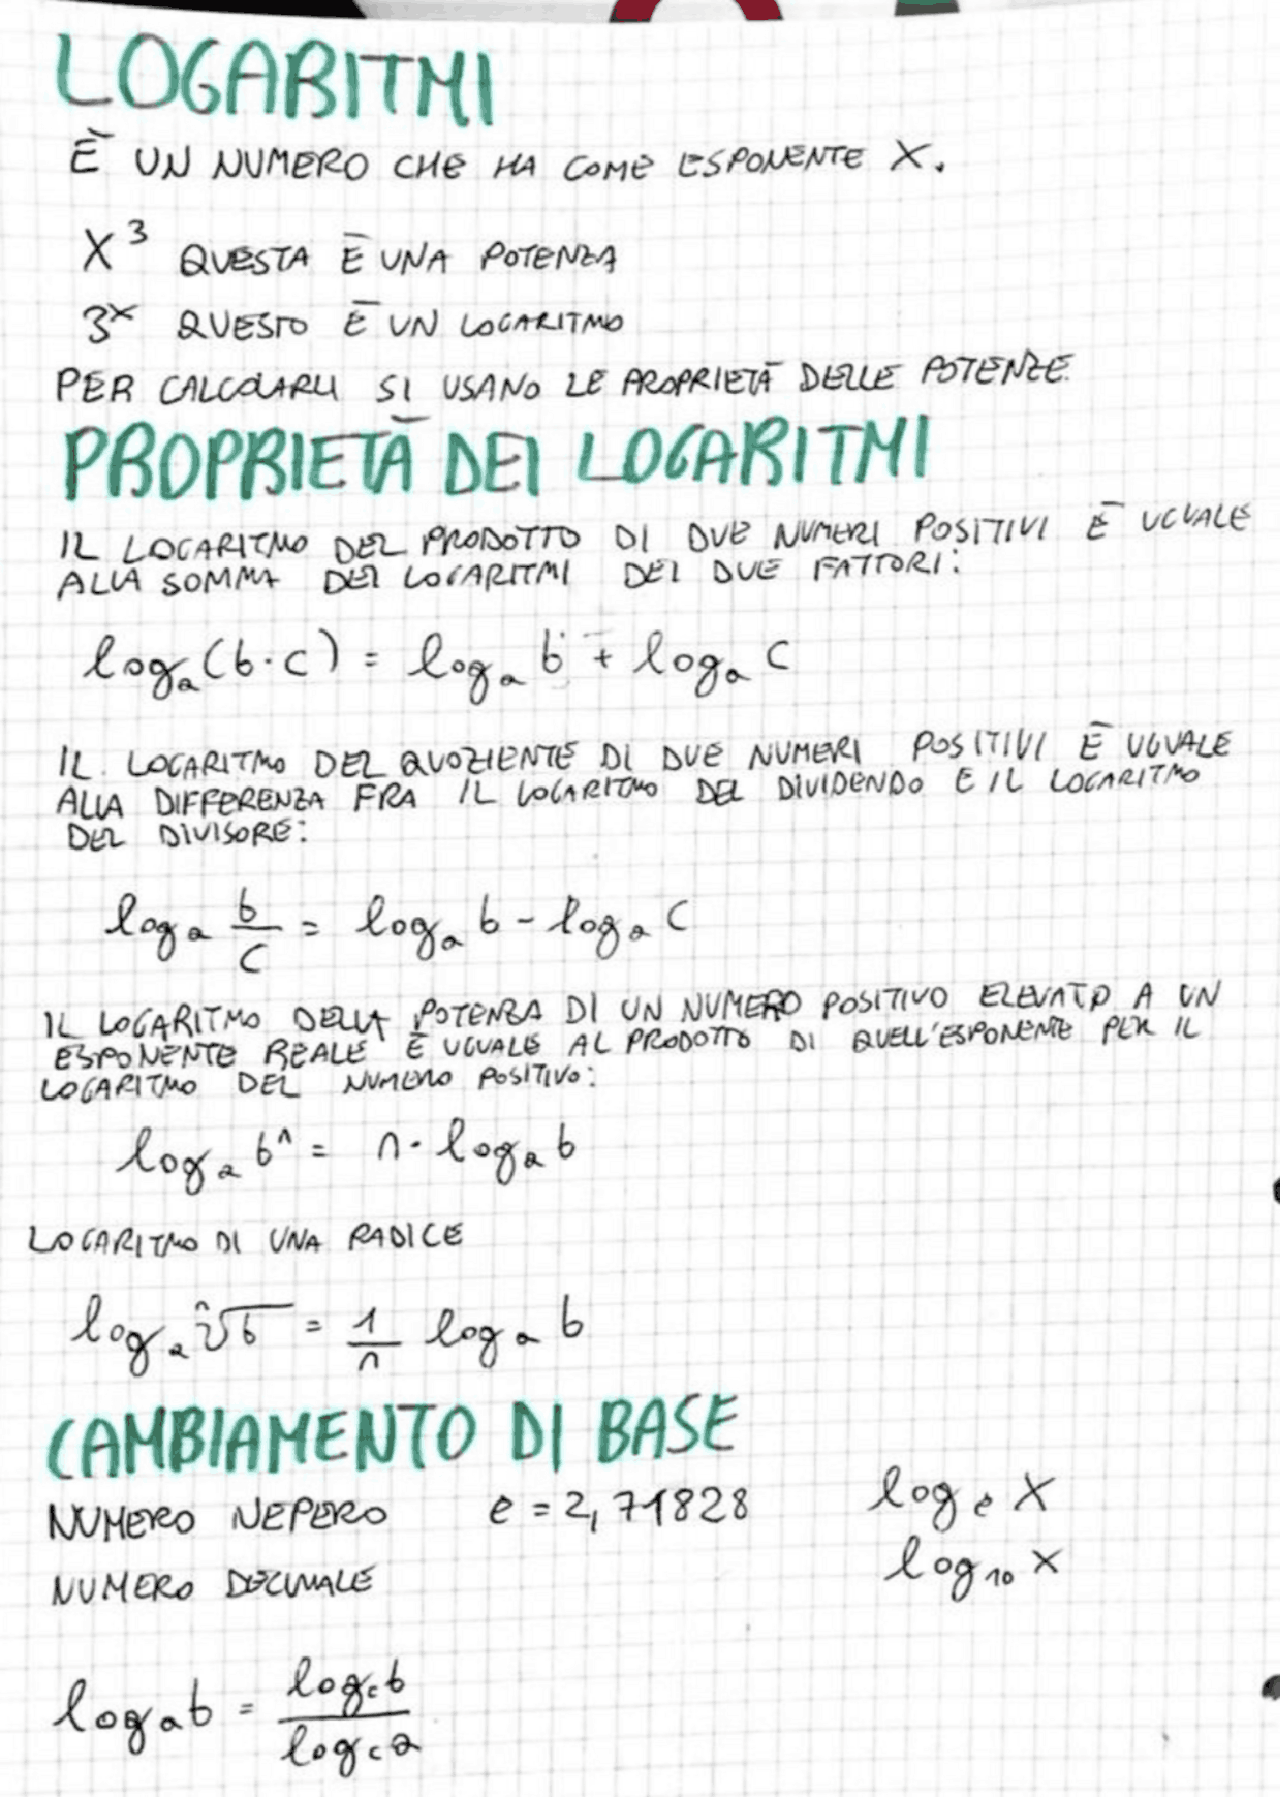 LOGARITMI
È UN NUMERO CHE HA COME ESPONENTE X.
X³ QUESTA È UNA POTENZA
3ˣ QUESTO È UN LOGARITMO
PER CALCOLARLI SI USANO LE PROPRIETÀ DELLE POTENZE.
PROPRIETÀ DEI LOGARITMI
IL LOGARITMO DEL PRODOTTO DI DUE NUMERI POSITIVI È UGUALE
ALLA SOMMA DEI LOGARITMI DEI DUE FATTORI:
logₐ(b·c) = logₐ b + logₐ c
IL LOGARITMO DEL QUOZIENTE DI DUE NUMERI POSITIVI È UGUALE
ALLA DIFFERENZA FRA IL LOGARITMO DEL DIVIDENDO E IL LOGARITMO
DEL DIVISORE:
logₐ b/c = logₐ b - logₐ c
IL LOGARITMO DELLA POTENZA DI UN NUMERO POSITIVO ELEVATO A UN
ESPONENTE REALE È UGUALE AL PRODOTTO DI QUELL'ESPONENTE PER IL
LOGARITMO DEL NUMERO POSITIVO:
logₐ bⁿ = n · logₐ b
LOGARITMO DI UNA RADICE
logₐ ⁿ√b = 1/n logₐ b
CAMBIAMENTO DI BASE
NUMERO NEPERO e = 2,71828 logₑ X
NUMERO DECIMALE log₁₀ X
logₐ b = log_c b / log_c a